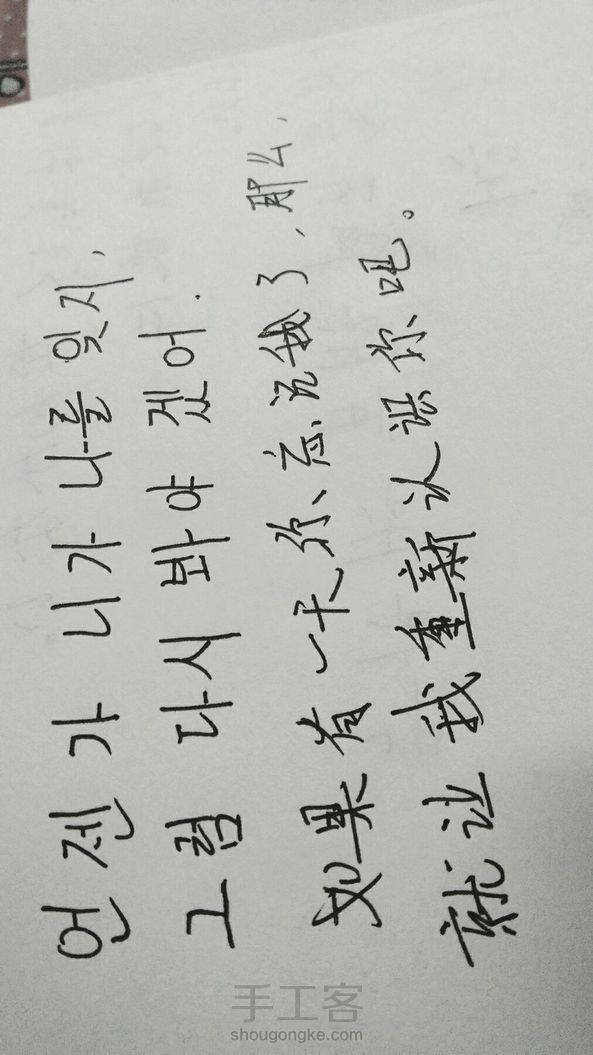 언젠가 니가 나를 잊지,
그럼 다시 바야 겠어.
如果有一天你忘记我了,那么,
就让我重新认识你吧。
手工客
shougongke.com